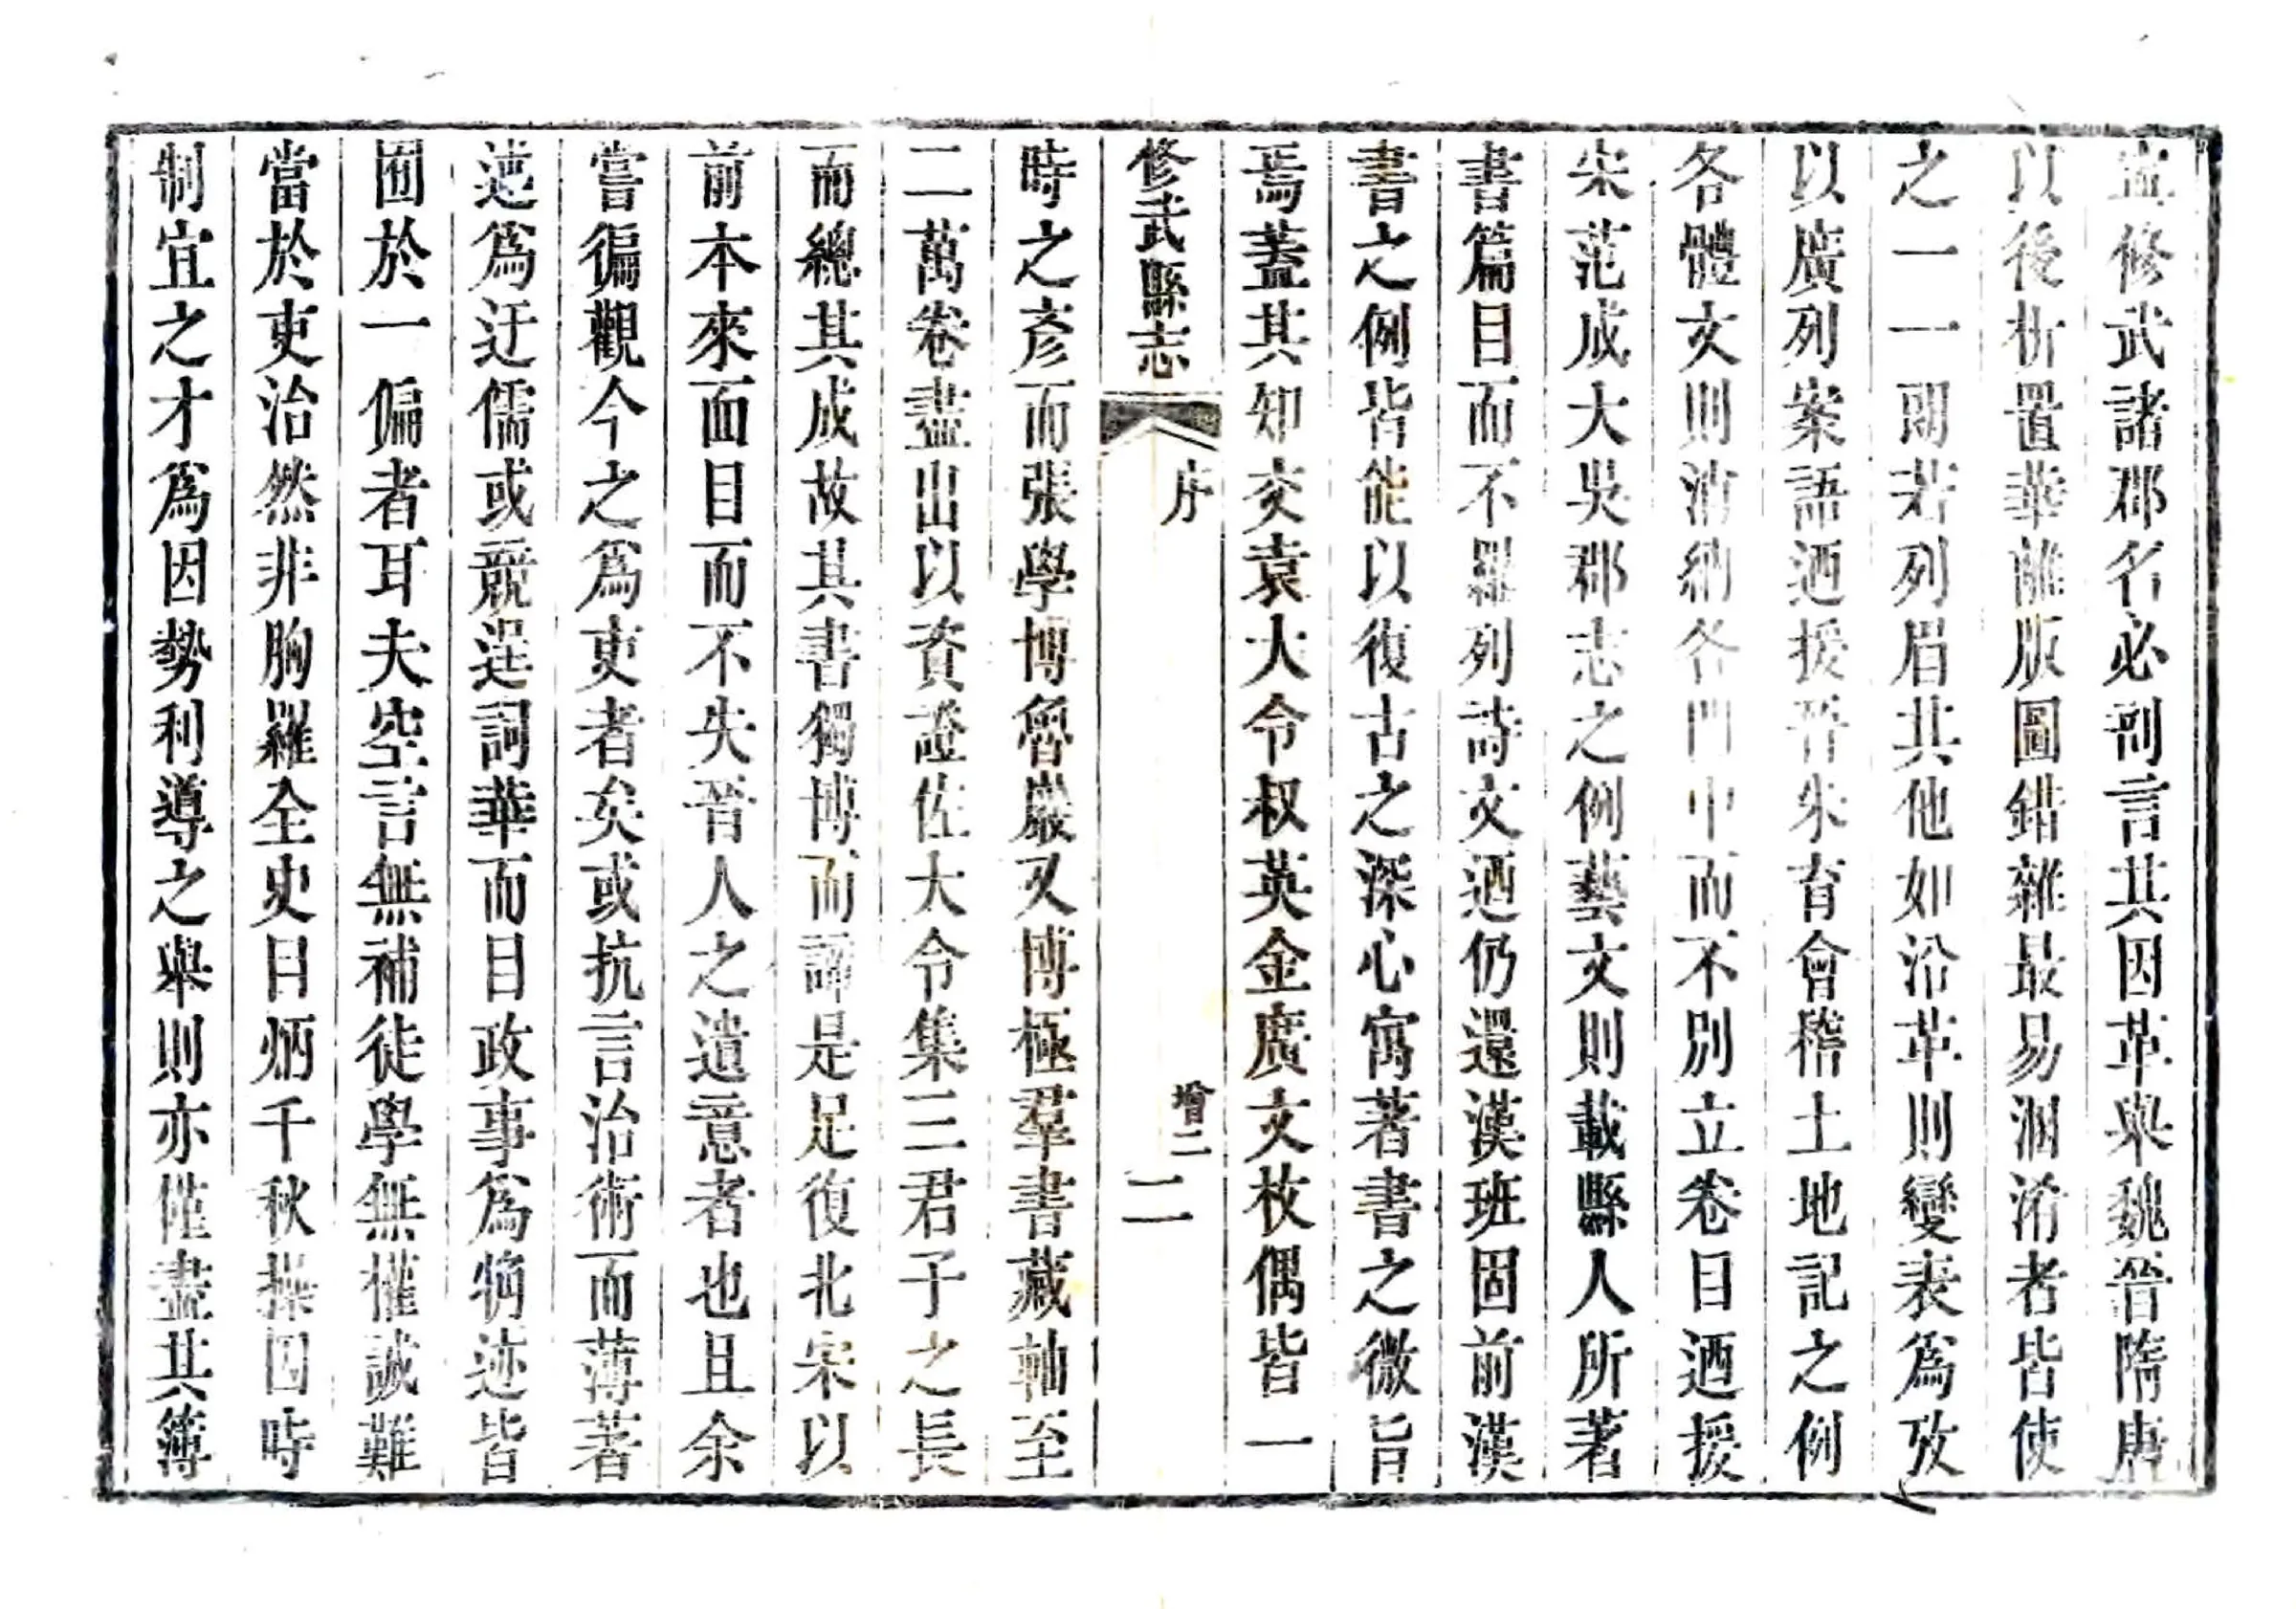 修武諸郡名必剖言其因革與魏晉隋唐
以後析置華離版圖錯雜最易溷淆者皆使
之一一朙若列眉其他如沿革則變表爲攷
以廣列案語迺援晉朱育會稽土地記之例
各體文則消納各門中而不別立卷目迺援
宋范成大吳郡志之例藝文則載縣人所著
書篇目而不羅列詩文迺仍還漢班固前漢
書之例皆能以復古之深心寓著書之微旨
焉蓋其知交袁大令叔英金廣文枚偶皆一
修武縣志
序
增二
二
時之彥而張學博魯巖又博極羣書藏軸至
二萬卷盡出以資證佐大令集三君子之長
而總其成故其書獨博而諦是足復北宋以
前本來面目而不失晉人之遺意者也且余
嘗徧觀今之爲吏者矣或抗言治術而薄著
述爲迂儒或競逞詞華而目政事爲觕迹皆
囿於一偏者耳夫空言無補徒學無權誠難
當於吏治然非胸羅全史日炳千秋操因時
制宜之才爲因勢利導之舉則亦僅盡其簿